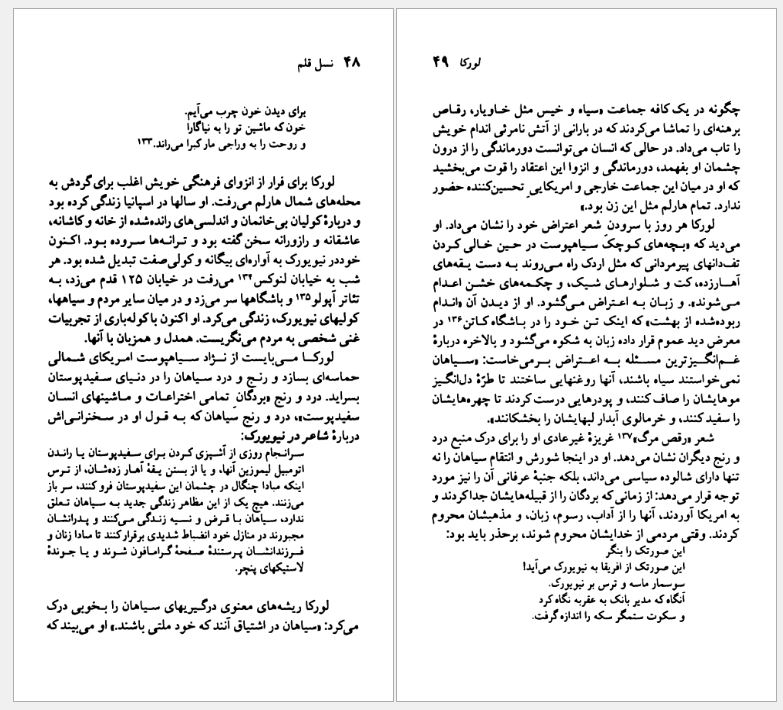 ۴۸ نسل قلم
برای دیدن خون چرب می‌آیم.
خون که ماشین تو را به نیاگارا
و روحت را به وراجی مار کبرا می‌راند.۱۳۳
لورکا برای فرار از انزوای فرهنگی خویش اغلب برای گردش به
محله‌های شمال هارلم می‌رفت. او سالها در اسپانیا زندگی کرده بود
و دربارهٔ کولیان بی‌خانمان و اندلسی‌های رانده‌شده از خانه و کاشانه،
عاشقانه و رازورانه سخن گفته بود و ترانه‌ها سروده بود. اکنون
خوددر نیویورک به آواره‌ای بیگانه و کولی‌صفت تبدیل شده بود. هر
شب به خیابان لنوکس۱۳۴ می‌رفت در خیابان ۱۲۵ قدم می‌زد، به
تئاتر آپولو۱۳۵ و باشگاهها سر می‌زد و در میان سایر مردم و سیاهها،
کولیهای نیویورک، زندگی می‌کرد. او اکنون با کوله‌باری از تجربیات
غنی شخصی به مردم می‌نگریست. همدل و همزبان با آنها.
لورکـا مـی‌بایست از نـژاد سـیاهپوست امریکای شمالی
حماسه‌ای بسازد و رنـج و درد سـیاهان را در دنیای سـفیدپوستان
بسراید. درد و رنج «بردگانِ تمامی اختراعـات و مـاشینهای انسان
سفیدپوست»، درد و رنج سیاهان که بـه قـول او در سـخنرانـی‌اش
دربارهٔ شاعر در نیویورک:
سرانجام روزی از آشپزی کـردن برای سـفیدپوستان یـا رانـدن
اتومبیل لیموزین آنها، و یا از بستن یقهٔ آهـار زده‌شـان، از تـرس
اینکه مبادا چنگال در چشمان این سفیدپوستان فرو کنند، سر باز
می‌زنند. هیچ یک از این مظاهر زندگی جدید به سیاهان تـعلق
ندارد، سیاهان بـا قـرض و نسیه زندگی مـی‌کنند و پـدرانشان
مجبورند در منازل خود انضباط شدیدی برقرار کنند تا مبادا زنان و
فرزندانشان پرستندهٔ صفحهٔ گرامافون شوند و یـا جـوندهٔ
لاستیکهای پنچر.
لورکا ریشه‌های معنوی درگیریهای سیاهان را بخوبی درک
می‌کرد: «سیاهان در اشتیاق آنند که خود ملتی باشند.» او می‌بیند که
لورکا ۴۹
چگونه در یک کافه جماعت «سیاه و خیس مثل خـاویار، رقـاص
برهنه‌ای را تماشا می‌کردند که در بارانی از آتش نامرئی اندام خویش
را تاب می‌داد. در حالی که انسان می‌توانست دورماندگی را از درون
چشمان او بفهمد، دورماندگی و انزوا این اعتقاد را قوت می‌بخشید
که او در میان این جماعت خارجی و امریکایی تحسین‌کننده حضور
ندارد. تمام هارلم مثل این زن بود.»
لورکا هر روز با سرودن شعر اعتراض خود را نشان می‌داد. او
می‌دید که «بچه‌های کوچک سیاهپوست در حین خالی کردن
تف‌دانهای پیرمردانی که مثل اردک راه مـی‌روند بـه دست یـقه‌های
آهـارزده، کت و شـلوارهای شـیک، و چکـمه‌های خشـن اعـدام
می‌شوند». و زبـان به اعتراض می‌گشود. او از دیـدن آن «انـدام
ربوده‌شده از بهشت» که اینک تـن خـود را در بـاشگاه کـاتن۱۳۶ در
معرض دید عموم قرار داده زبان به شکوه می‌گشود و بالاخره دربارهٔ
غـم‌انگیزترین مسـئله بـه اعـتراض بـرمـی‌خاست: «سـیاهان
نمی‌خواستند سیاه باشند، آنها روغنهایی ساختند تا طرّهٔ دل‌انگیز
موهایشان را صاف کنند، و پودرهایی درست کردند تا چهره‌هایشان
را سفید کنند، و خرمالوی آبدار لبهایشان را بخشکانند».
شعر «رقص مرگ»۱۳۷ غریزهٔ غیرعادی او را برای درک منبع درد
و رنج دیگران نشان می‌دهد. او در اینجا شورش و انتقام سیاهان را نه
تنها دارای شالوده سیاسی می‌داند، بلکه جنبهٔ عرفانی آن را نیز مورد
توجه قرار می‌دهد: از زمانی که بردگان را از قبیله‌هایشان جدا کردند و
به امریکا آوردند، آنها را از آداب، رسوم، زبان، و مذهبشان محروم
کردند. وقتی مردمی از خدایشان محروم شوند، برحذر باید بود:
این صورتک را بنگر
این صورتک از افریقا به نیویورک می‌آید!
سوسمار ماسه و ترس بر نیویورک.
آنگاه که مدیر بانک به عقربه نگاه کرد
و سکوت ستمگر سکه را اندازه گرفت.